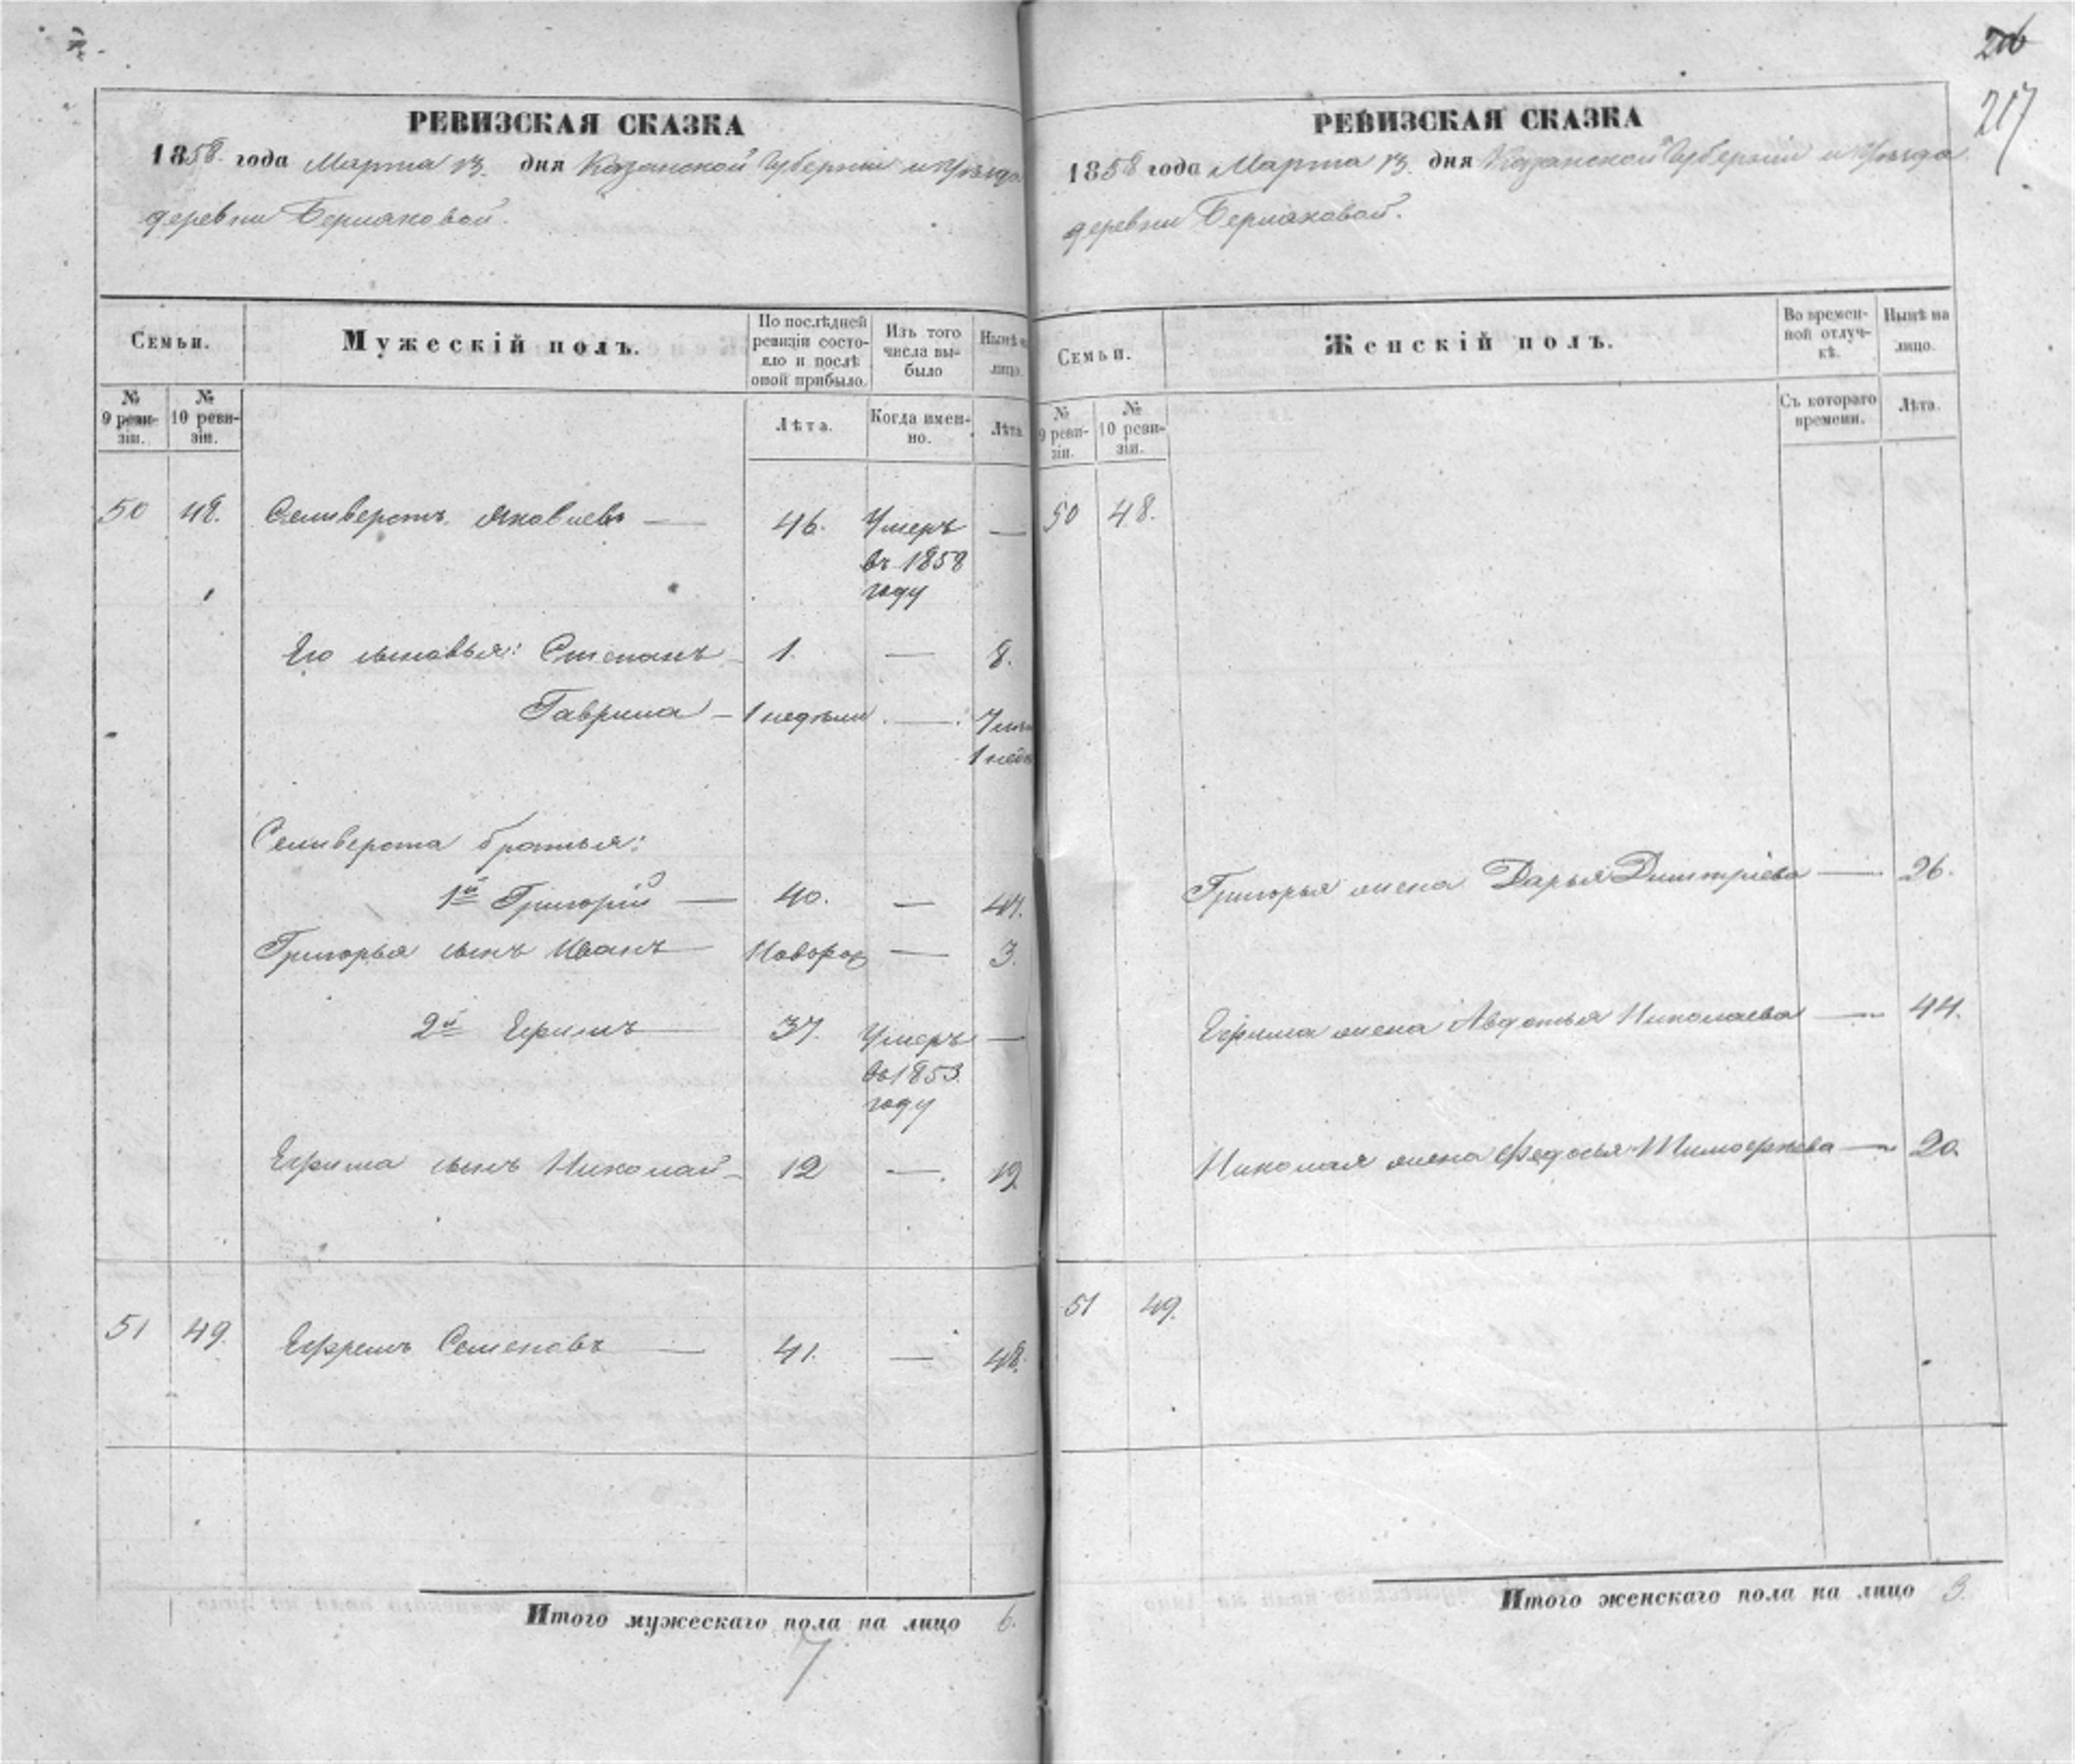 216
217
РЕВИЗСКАЯ СКАЗКА
1858 года Марта 13. дня Казанской Губерніи и Уѣзда
деревни Бермяковой.
Семьи.
Мужескій полъ.
По послѣдней
ревизіи состо-
яло и послѣ
оной прибыло.
Изъ того
числа вы-
было
Нынѣ на
лицо.
№
9 реви-
зіи.
№
10 реви-
зіи.
Лѣта.
Когда имен-
но.
Лѣта.
50 48. Селиверстъ Яковлевъ — 46. Умеръ —
въ 1858
году
Его сыновья: Степанъ 1. — 8.
Гаврила — 1 недѣли — 7 лѣтъ
1 недѣ
Селиверста братья:
1й Григорій — 40. — 47.
Григорья сынъ Иванъ — Новорож — 3.
2й Ефимъ — 37. Умеръ —
въ 1853
году
Ефима сынъ Николай — 12 — 19
51 49. Ефремъ Семеновъ — 41. — 48.
Итого мужескаго пола на лицо 6.
7
РЕВИЗСКАЯ СКАЗКА
1858 года Марта 13. дня Казанской Губерніи и Уѣзда
деревни Бермяковой.
Семьи.
Женскій полъ.
Во времен-
ной отлуч-
кѣ.
Нынѣ на
лицо.
№
9 реви-
зіи.
№
10 реви-
зіи.
Съ котораго
времени.
Лѣта.
50 48.
Григорья жена Дарья Дмитріева — 26.
Ефима жена Авдотья Николаева — 44.
Николая жена Федосья Тимофѣева — 20.
51 49.
Итого женскаго пола на лицо 3.